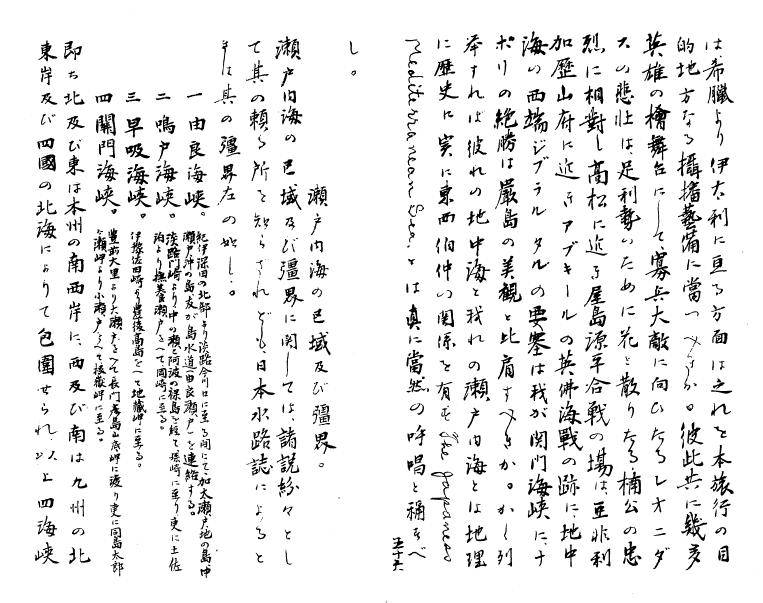 は希臘より伊太利に亘る方面は之れを本旅行の目
的地方なる攝播藝備に當つべきか。彼此共に幾多
英雄の檜舞台にして、寡兵大敵に向ひたるレオニダ
スの悲壮は足利勢のために花と散りたる楠公の忠
烈に相對し、高松に近き屋島源平合戦の場は、亜非利
加歴山府に近きアブキールの英佛海戰の跡に、地中
海の西端ジブラルタルの要塞は我が関門海峡に、ナ
ポリの絶勝は嚴島の美観と比肩すべきか。かく列
挙すれば彼れの地中海と我れの瀬戸内海とは地理
に歴史に実に東西伯仲の関係を有す The Japanese
Mediterranean Sea. とは真に當然の呼唱と稱すべ
五十六
し。
瀬戸内海の区域及び疆界。
瀬戸内海の区域及び疆界に関しては、諸説紛々とし
て其の頼る所を知らざれども、日本水路誌によると
きは其の疆界左の如し。
一 由良海峡。紀伊深田の北部より淡路今川口に至る間にて、加太瀬戸地の島沖
瀬戸沖の島友が島水道(由良瀬戸)を連絡する。
二 鳴戸海峡。淡路門崎より中の瀬を阿波の裸島を経て孫崎に至り更に土佐
泊より撫養瀬戸をへて岡崎に至る。
三 早吸海峡。伊豫佐田崎より豊後高島をへて地蔵岬に至る。
四 關門海峡。豊前大里より大瀬戸をへて長門彦島山底岬に渡り更に同島太郎
ヶ瀬岬より小瀬戸をへて接嶽岬に至る。
即ち北及び東は本州の南西岸に、西及び南は九州の北
東岸及び四國の北海によりて包圍せられ、以上四海峡